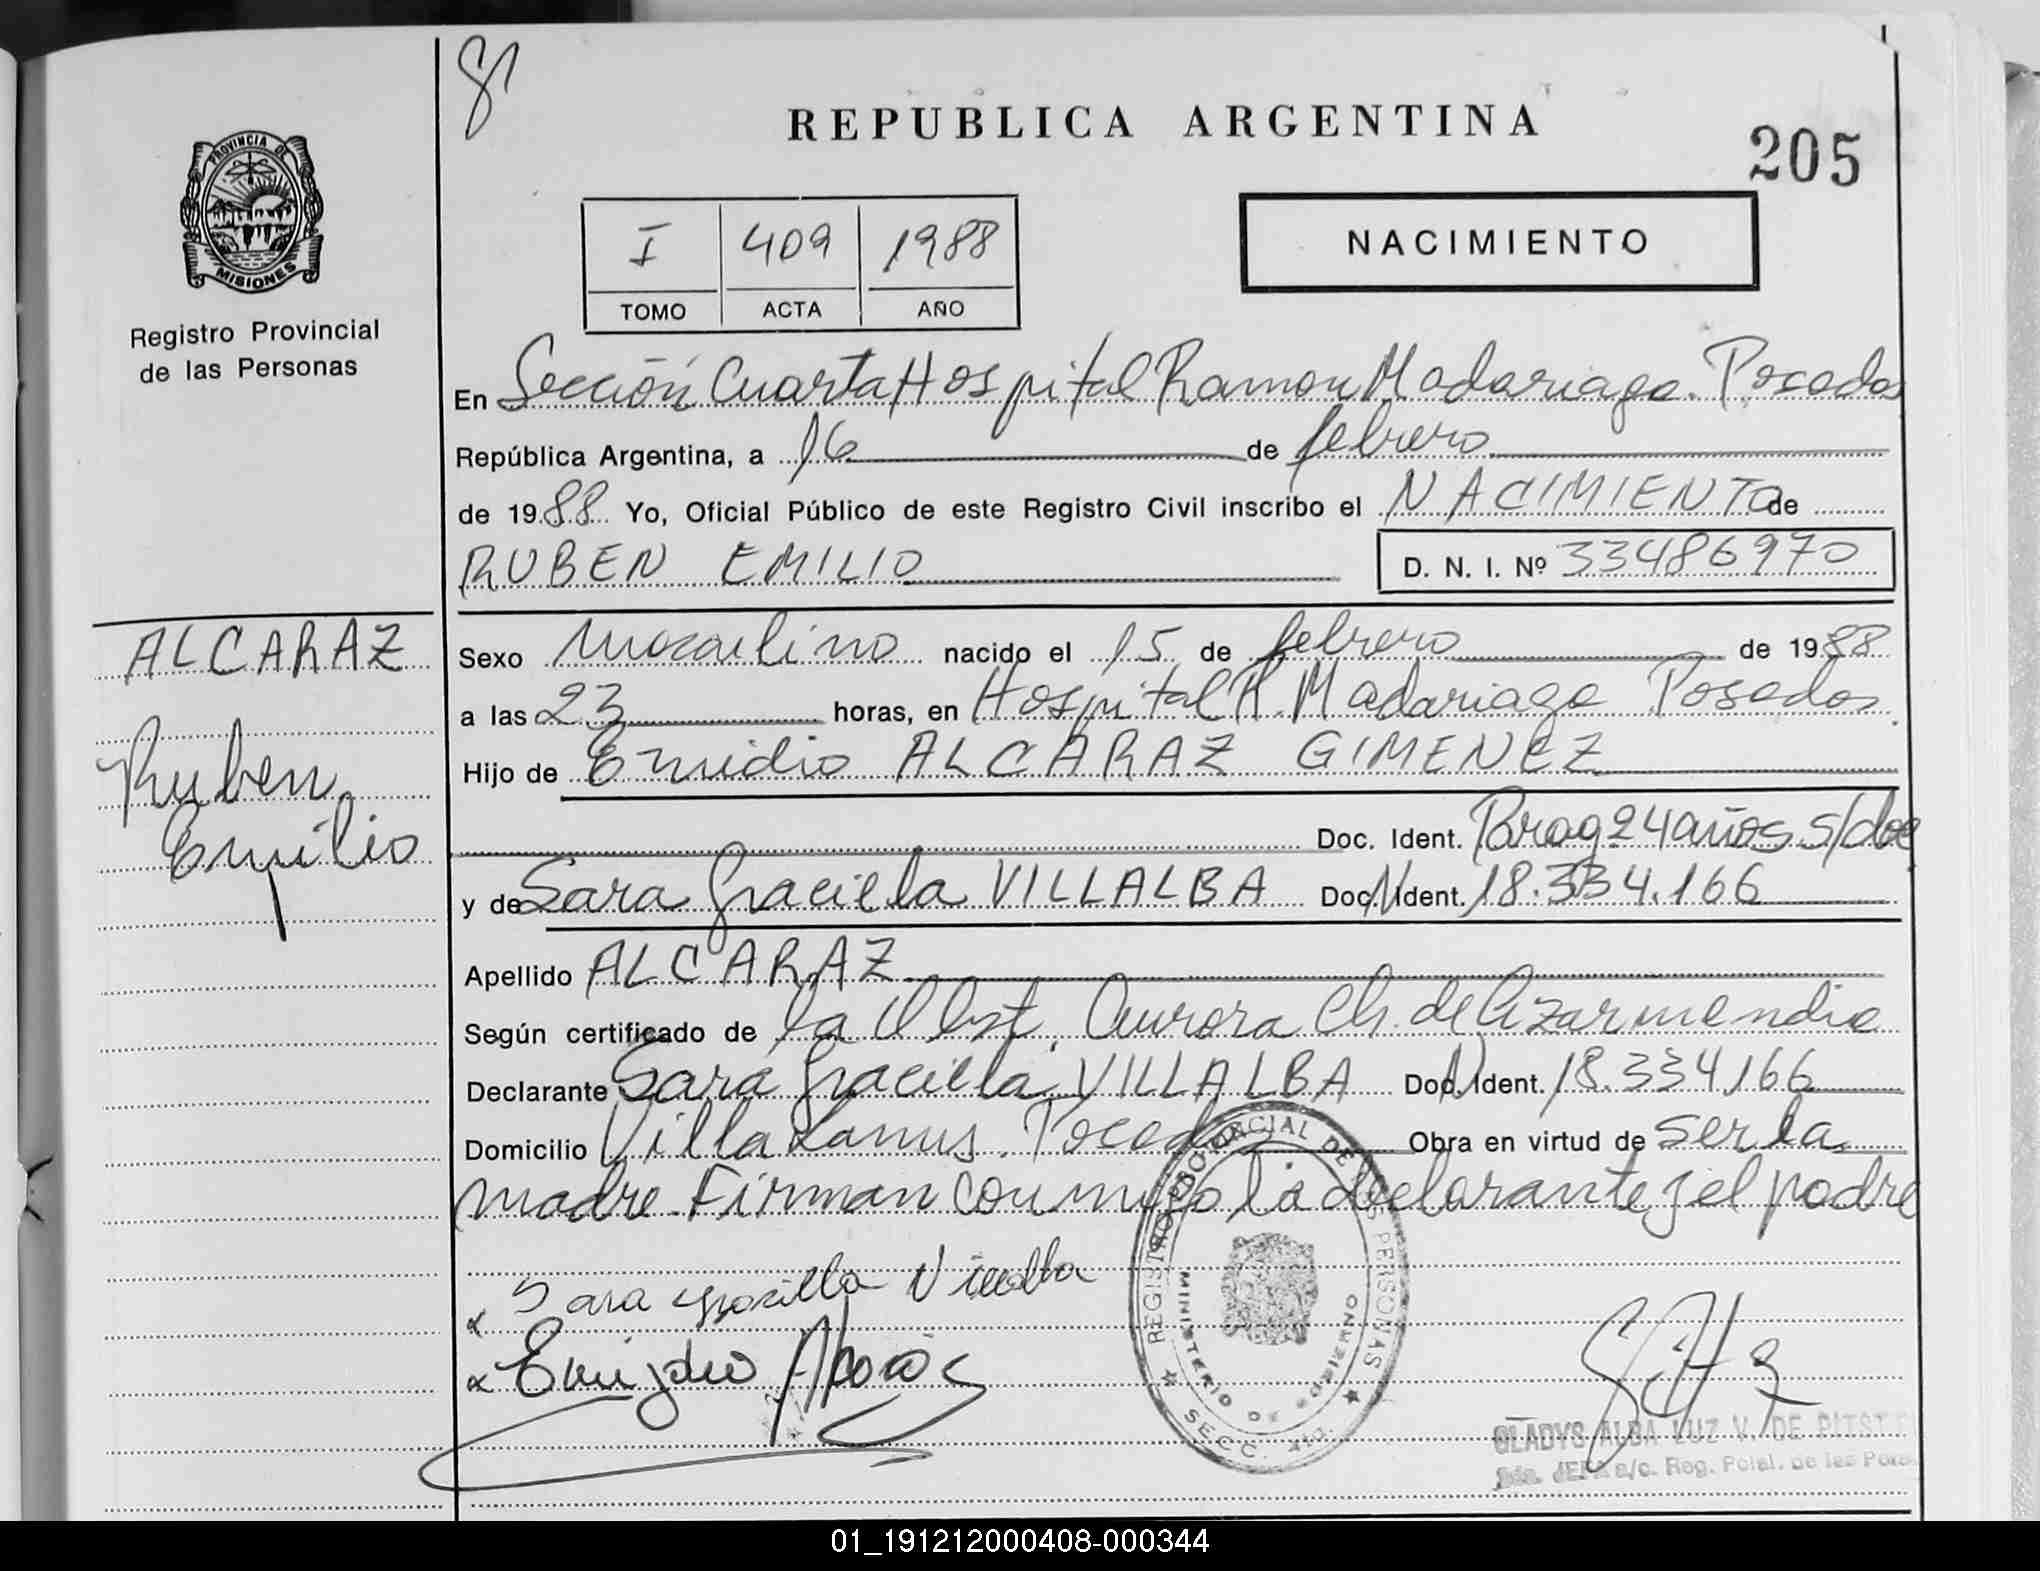 81
REPUBLICA ARGENTINA
205
PROVINCIA DE
MISIONES
Registro Provincial
de las Personas
I 409 1988
TOMO ACTA AÑO
NACIMIENTO
En Sección Cuarta Hospital Ramon Madariaga. Posadas
República Argentina, a 16 de febrero
de 1988 Yo, Oficial Público de este Registro Civil inscribo el NACIMIENTO de
RUBEN EMILIO D. N. I. Nº 33486970
ALCARAZ
Ruben
Emilio
Sexo Masculino nacido el 15 de febrero de 1988
a las 23 horas, en Hospital R. Madariaga Posadas
Hijo de Emidio ALCARAZ GIMENEZ
Doc. Ident. Parag 24 años s/doc
y de Sara Graciela VILLALBA Doc. N. Ident. 18.334.166
Apellido ALCARAZ
Según certificado de la Obst. Aurora Ch. de Azarmendia
Declarante Sara Graciela VILLALBA Doc. N Ident. 18.334166
Domicilio Villa Lanus. Posadas Obra en virtud de ser la
madre. Firman conmigo la declarante y el padre
Sara Graciella Villalba
Emizdio
REGISTRO PROVINCIAL DE LAS PERSONAS
MINISTERIO DE GOBIERNO
SECC. 4ta.
GLADYS ALBA LUZ V. DE
JEFA a/c. Reg. Pcial. de las Pers
01_191212000408-000344